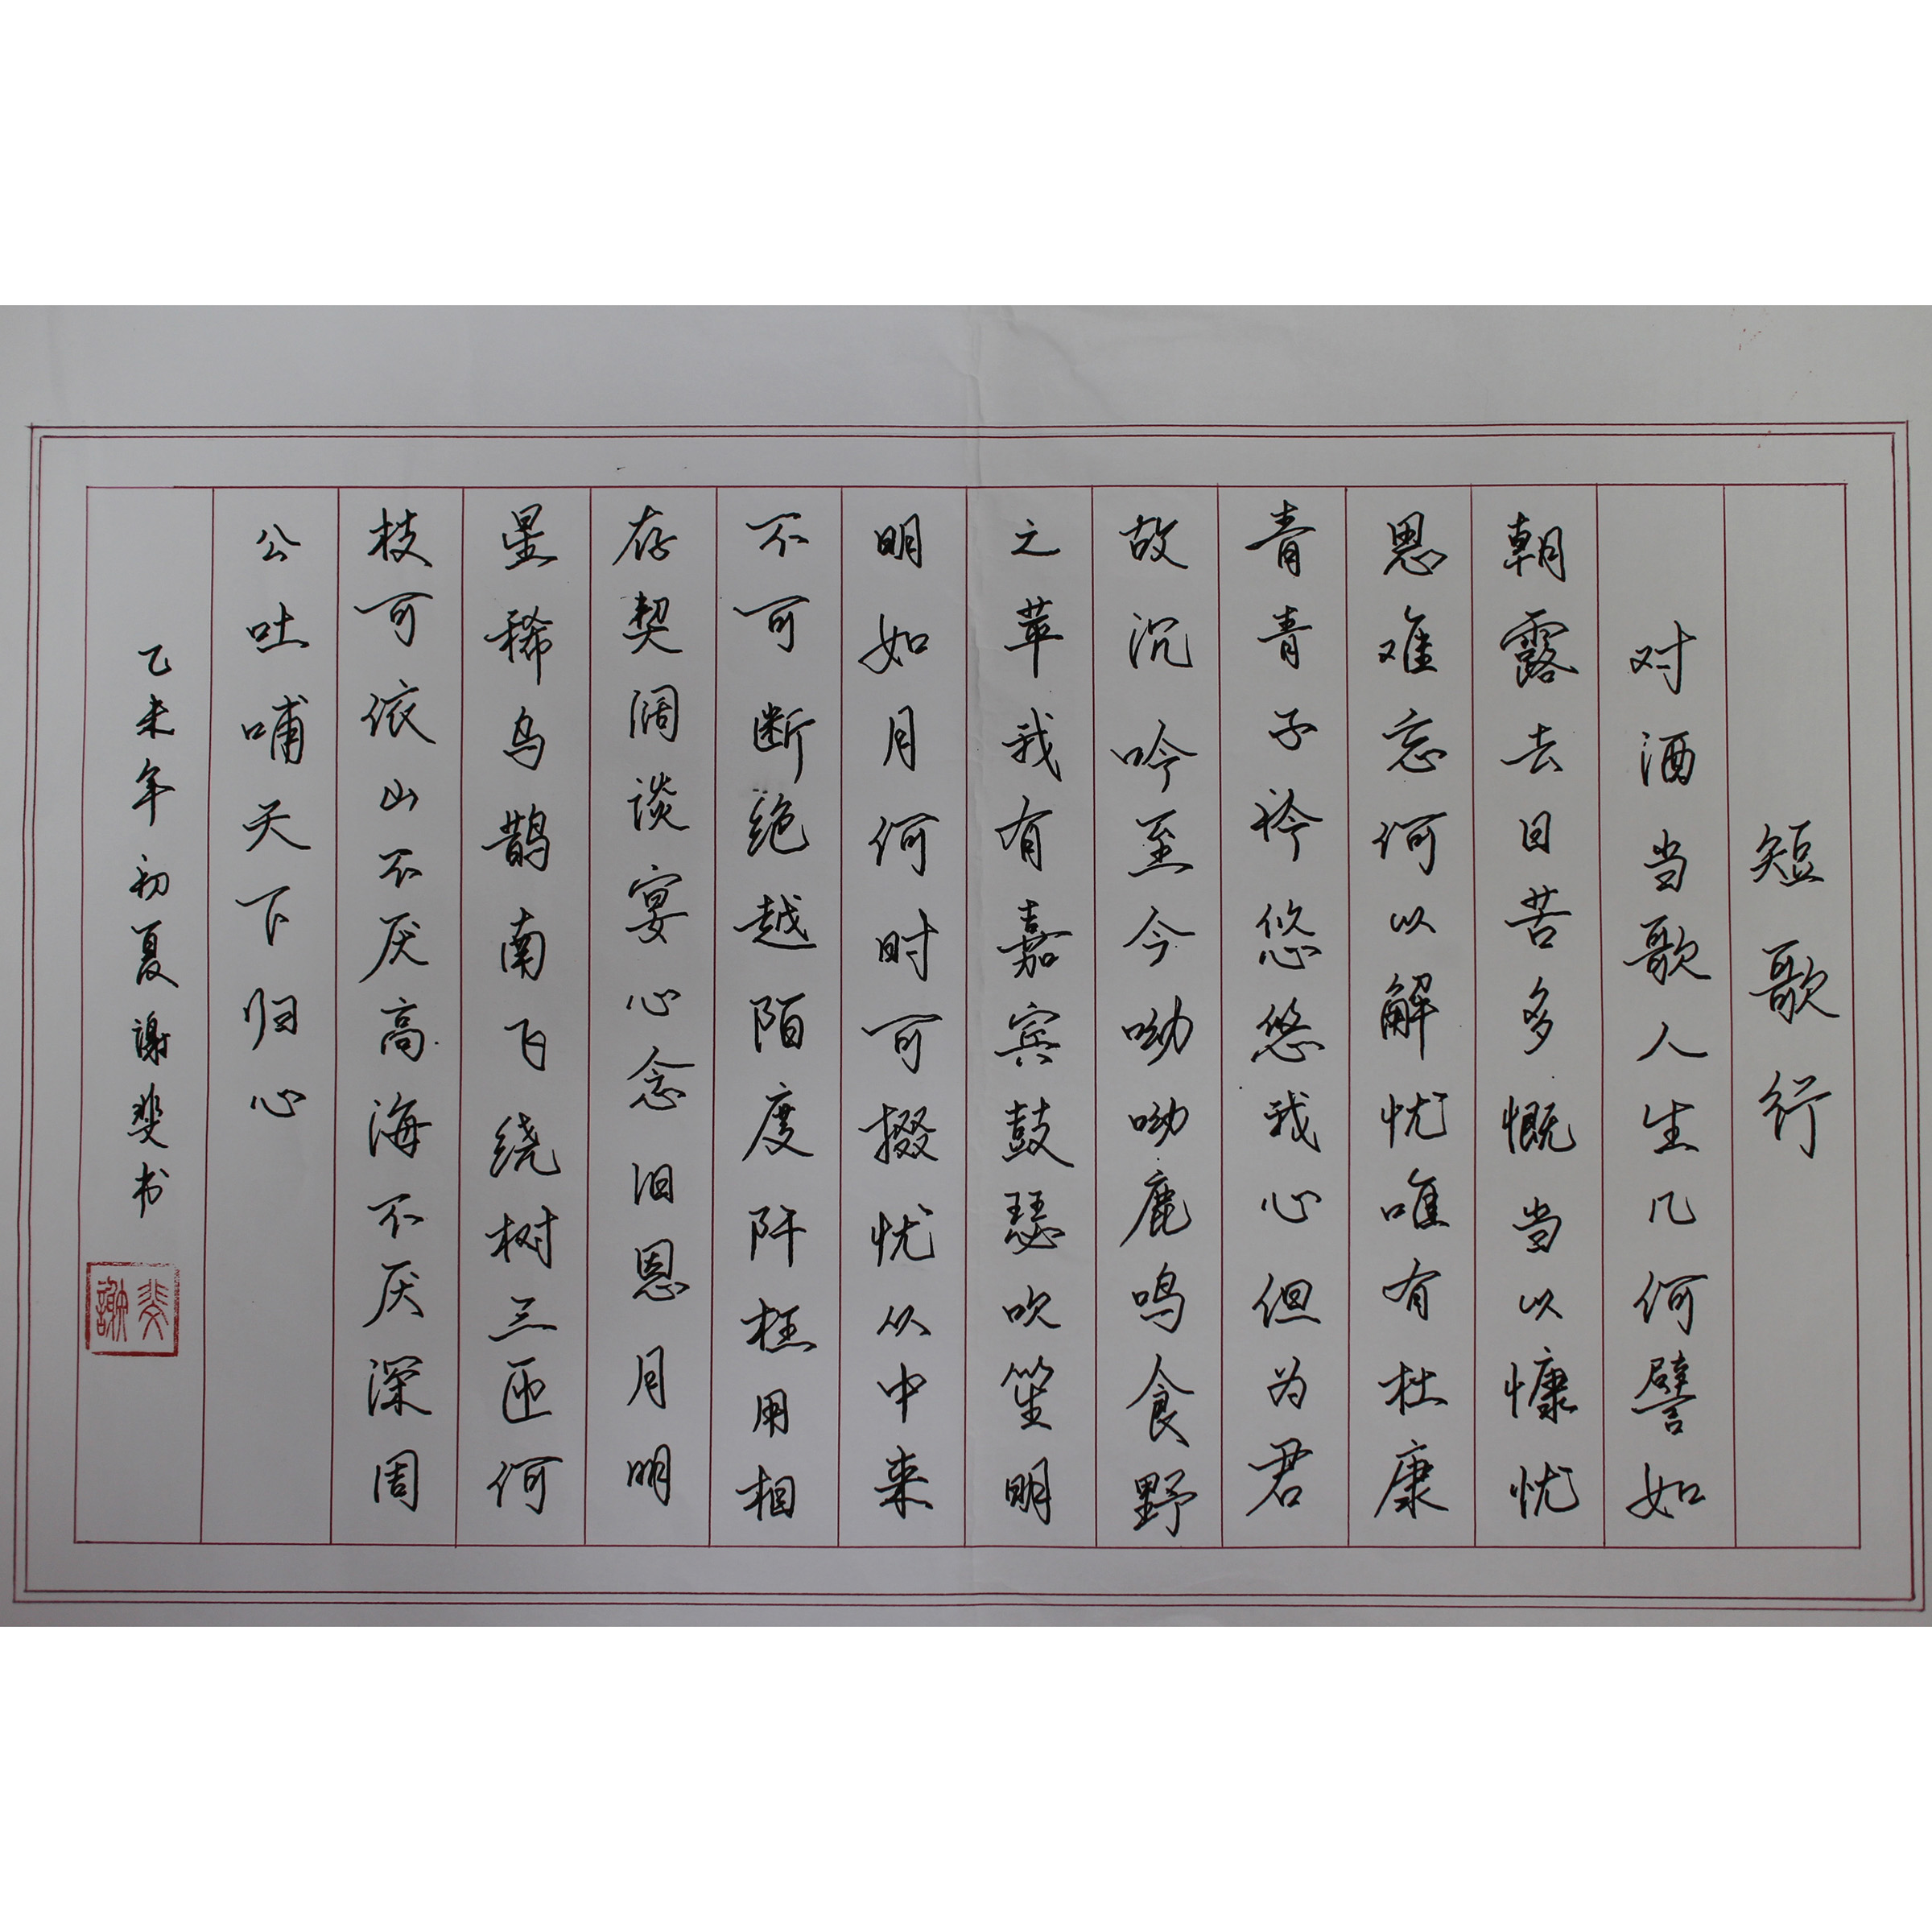 短歌行
对酒当歌人生几何譬如
朝露去日苦多慨当以慷忧
思难忘何以解忧唯有杜康
青青子衿悠悠我心但为君
故沉吟至今呦呦鹿鸣食野
之苹我有嘉宾鼓瑟吹笙明
明如月何时可掇忧从中来
不可断绝越陌度阡枉用相
存契阔谈宴心念旧恩月明
星稀乌鹊南飞绕树三匝何
枝可依山不厌高海不厌深周
公吐哺天下归心
乙未年初夏谢斐书
斐謝